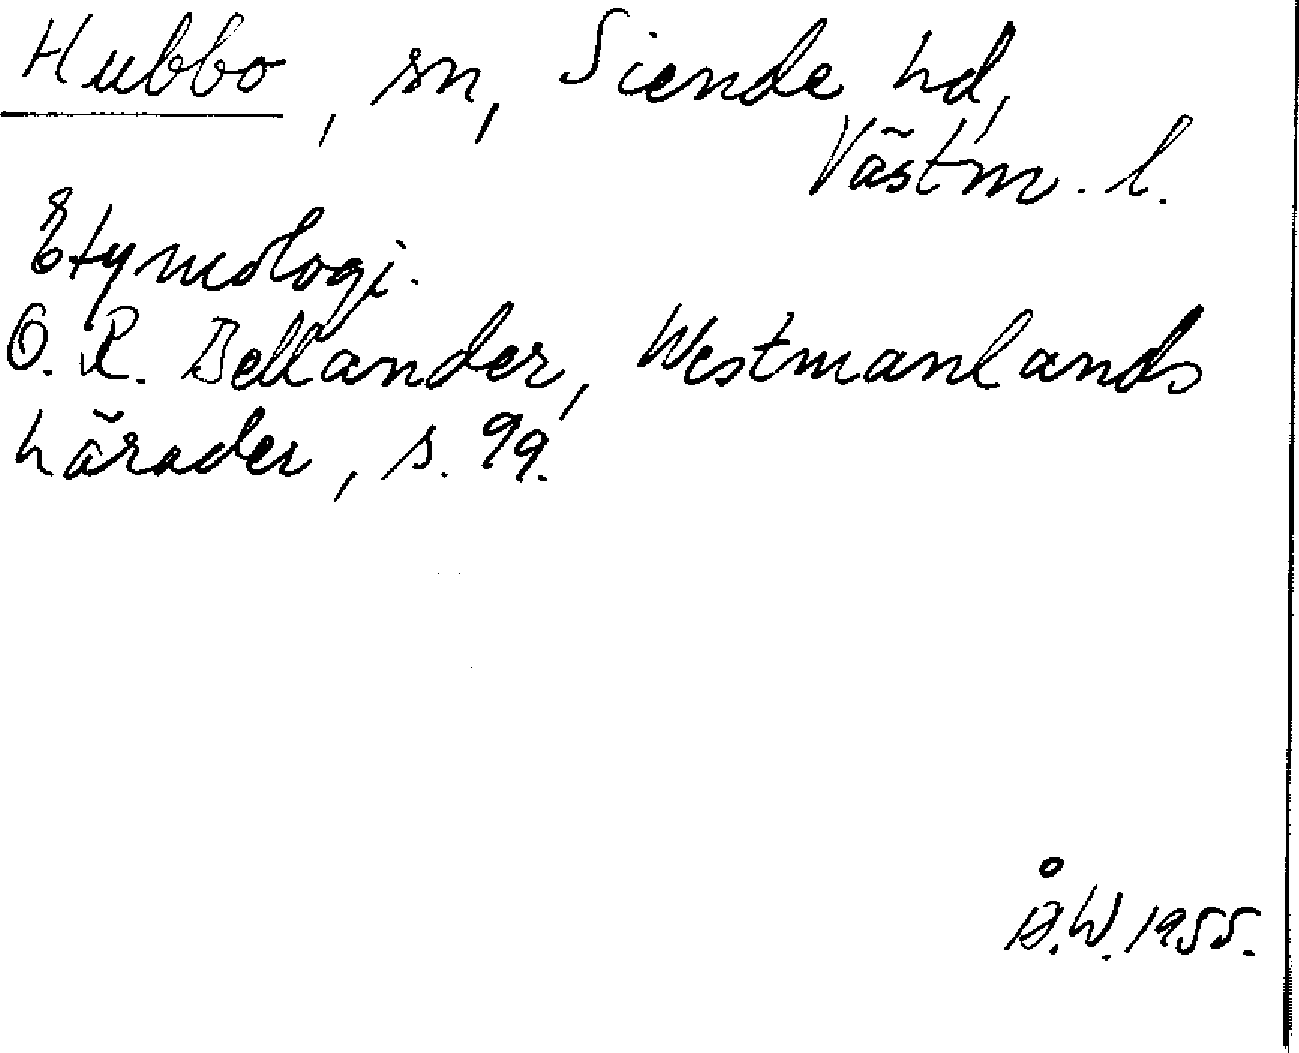 Hubbo, sn, Siende hd,
Västm. l.
Etymologi.
O. R. Bellander, Westmanlands
härader, s. 99.
Å.W. 1955.